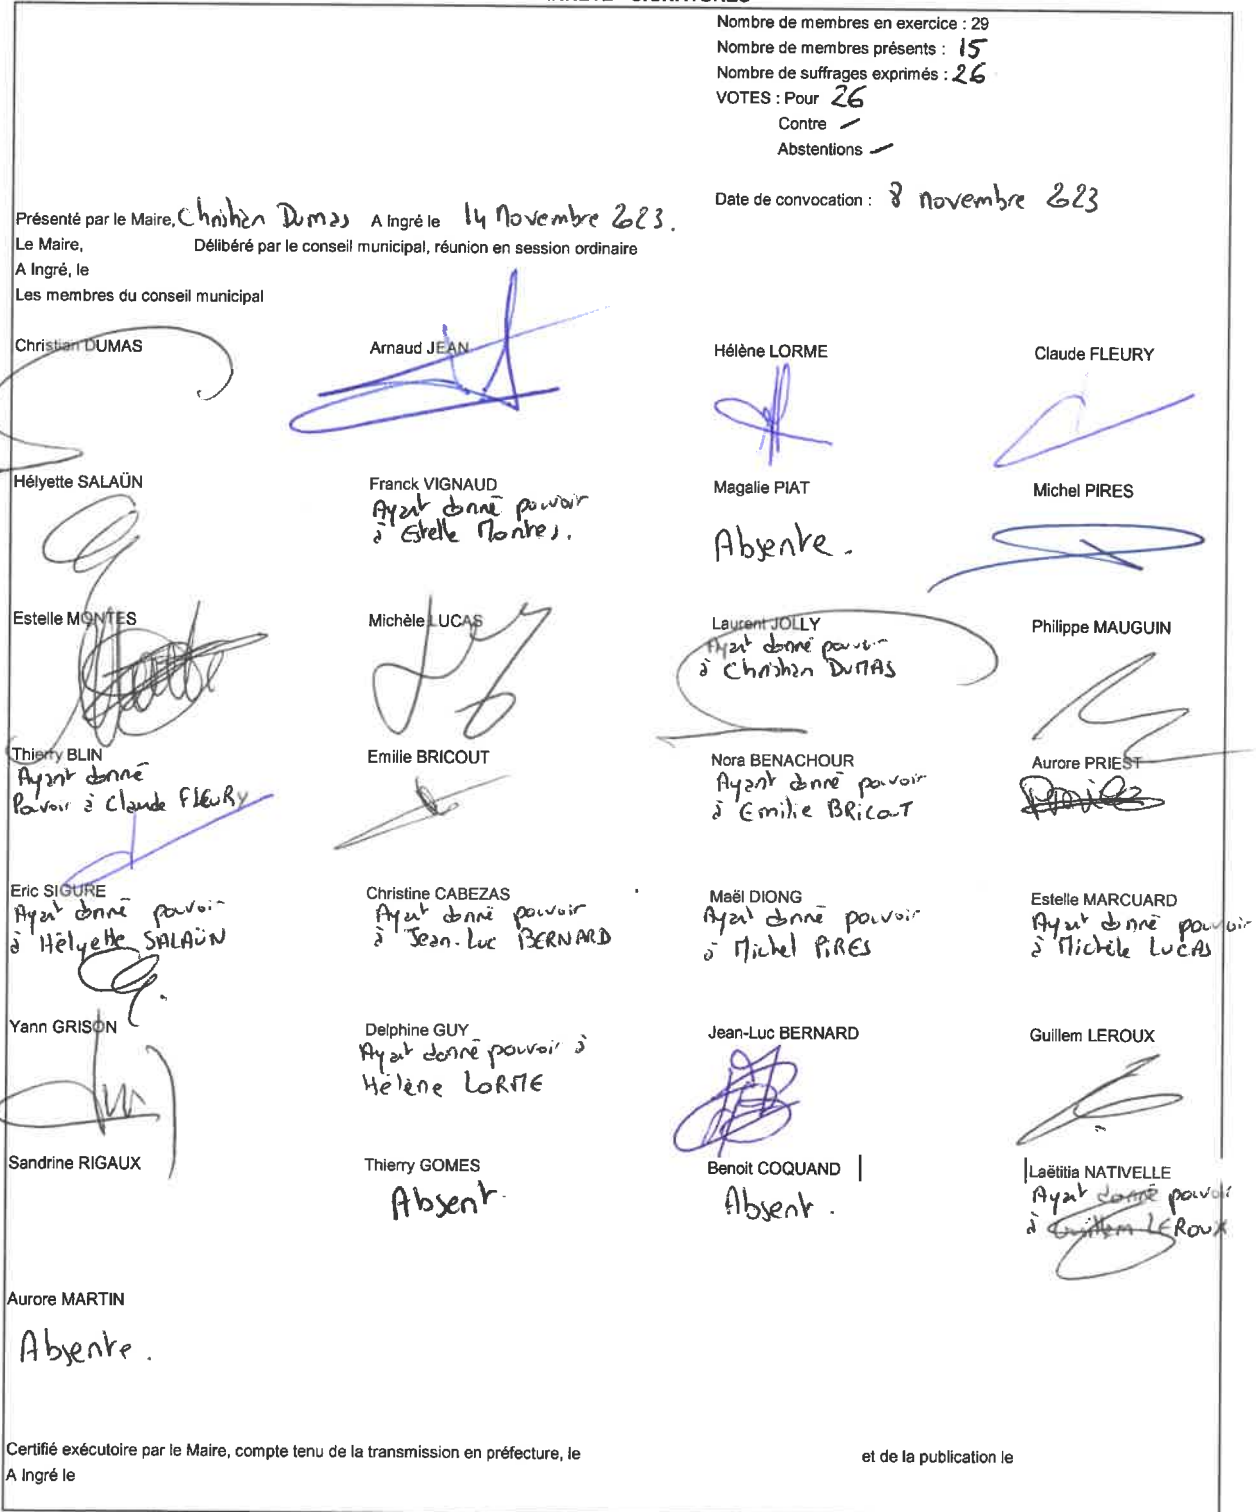 Nombre de membres en exercice : 29
Nombre de membres présents : 15
Nombre de suffrages exprimés : 26
VOTES : Pour 26
Contre –
Abstentions –
Date de convocation : 8 novembre 2023
Présenté par le Maire, Christian Dumas A Ingré le 14 novembre 2023.
Le Maire, Délibéré par le conseil municipal, réunion en session ordinaire
A Ingré, le
Les membres du conseil municipal
Christian DUMAS Arnaud JEAN Hélène LORME Claude FLEURY
Hélyette SALAÜN
Franck VIGNAUD
Ayant donné pouvoir
à Estelle Montes.
Magalie PIAT
Absente.
Michel PIRES
Estelle MONTES
Michèle LUCAS
Laurent JOLLY
Ayant donné pouvoir
à Christian DUMAS
Philippe MAUGUIN
Thierry BLIN
Ayant donné
Pouvoir à Claude FLEURY
Emilie BRICOUT
Nora BENACHOUR
Ayant donné pouvoir
à Emilie BRICOUT
Aurore PRIEST
Eric SIGURE
Ayant donné pouvoir
à Hélyette SALAÜN
Christine CABEZAS
Ayant donné pouvoir
à Jean-Luc BERNARD
Maël DIONG
Ayant donné pouvoir
à Michel PIRES
Estelle MARCUARD
Ayant donné pouvoir
à Michèle LUCAS
Yann GRISON
Delphine GUY
Ayant donné pouvoir à
Hélène LORME
Jean-Luc BERNARD
Guillem LEROUX
Sandrine RIGAUX
Thierry GOMES
Absent.
Benoit COQUAND
Absent.
Laëtitia NATIVELLE
Ayant donné pouvoir
à Guillem LEROUX
Aurore MARTIN
Absente.
Certifié exécutoire par le Maire, compte tenu de la transmission en préfecture, le et de la publication le
A Ingré le